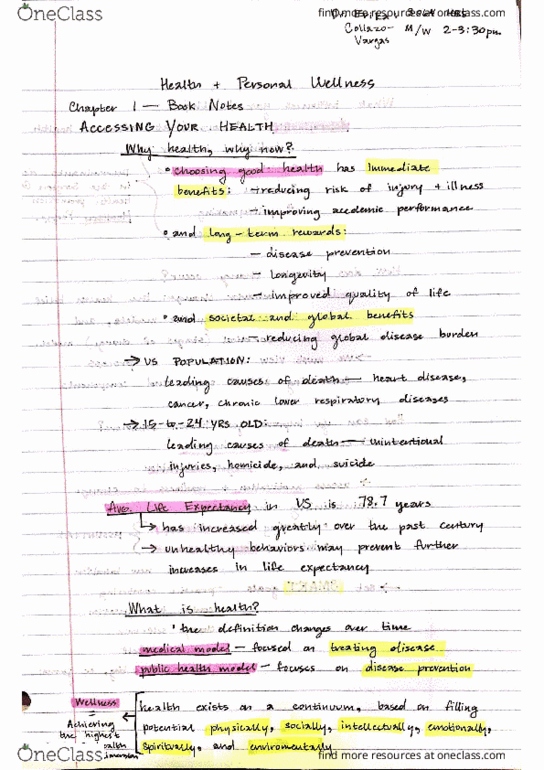 OneClass
find more resources at oneclass.com
Collazo- M/W 2-3:30pm.
Vargas
Health + Personal Wellness
Chapter 1 — Book Notes
ACCESSING YOUR HEALTH
Why health, why now?
• choosing good health has immediate
benefits: → reducing risk of injury + illness
→ improving academic performance
• and long-term rewards:
— disease prevention
— longevity
— improved quality of life
• and societal and global benefits
— reducing global disease burden
→ US POPULATION:
leading causes of death — heart disease,
cancer, chronic lower respiratory diseases
→ 15-to-24 YRS OLD:
leading causes of death — unintentional
injuries, homicide, and suicide
Avg. Life Expectancy in US is 78.7 years
↳ has increased greatly over the past century
→ unhealthy behaviors may prevent further
increases in life expectancy
What is health?
• the definition changes over time
medical model — focused on treating disease
public health model — focuses on disease prevention
Wellness
=
Achieving
the highest
health exists on a continuum, based on filling
potential physically, socially, intellectually, emotionally,
spiritually, and enviromentally
OneClass
find more resources at oneclass.com